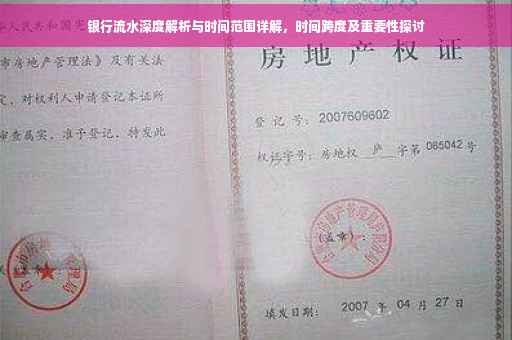 银行流水深度解析与时间范围详解，时间跨度及重要性探讨
人民共和国宪
市房地产管理法》及有关法
定，对权利人申请登记本证所
审查属实，准予登记，特发此
房地产权证
登记号：2007609602
权证字号：房地权 庐 字第 065042 号
(盖章)：
填发日期：2007 年 04 月 27 日